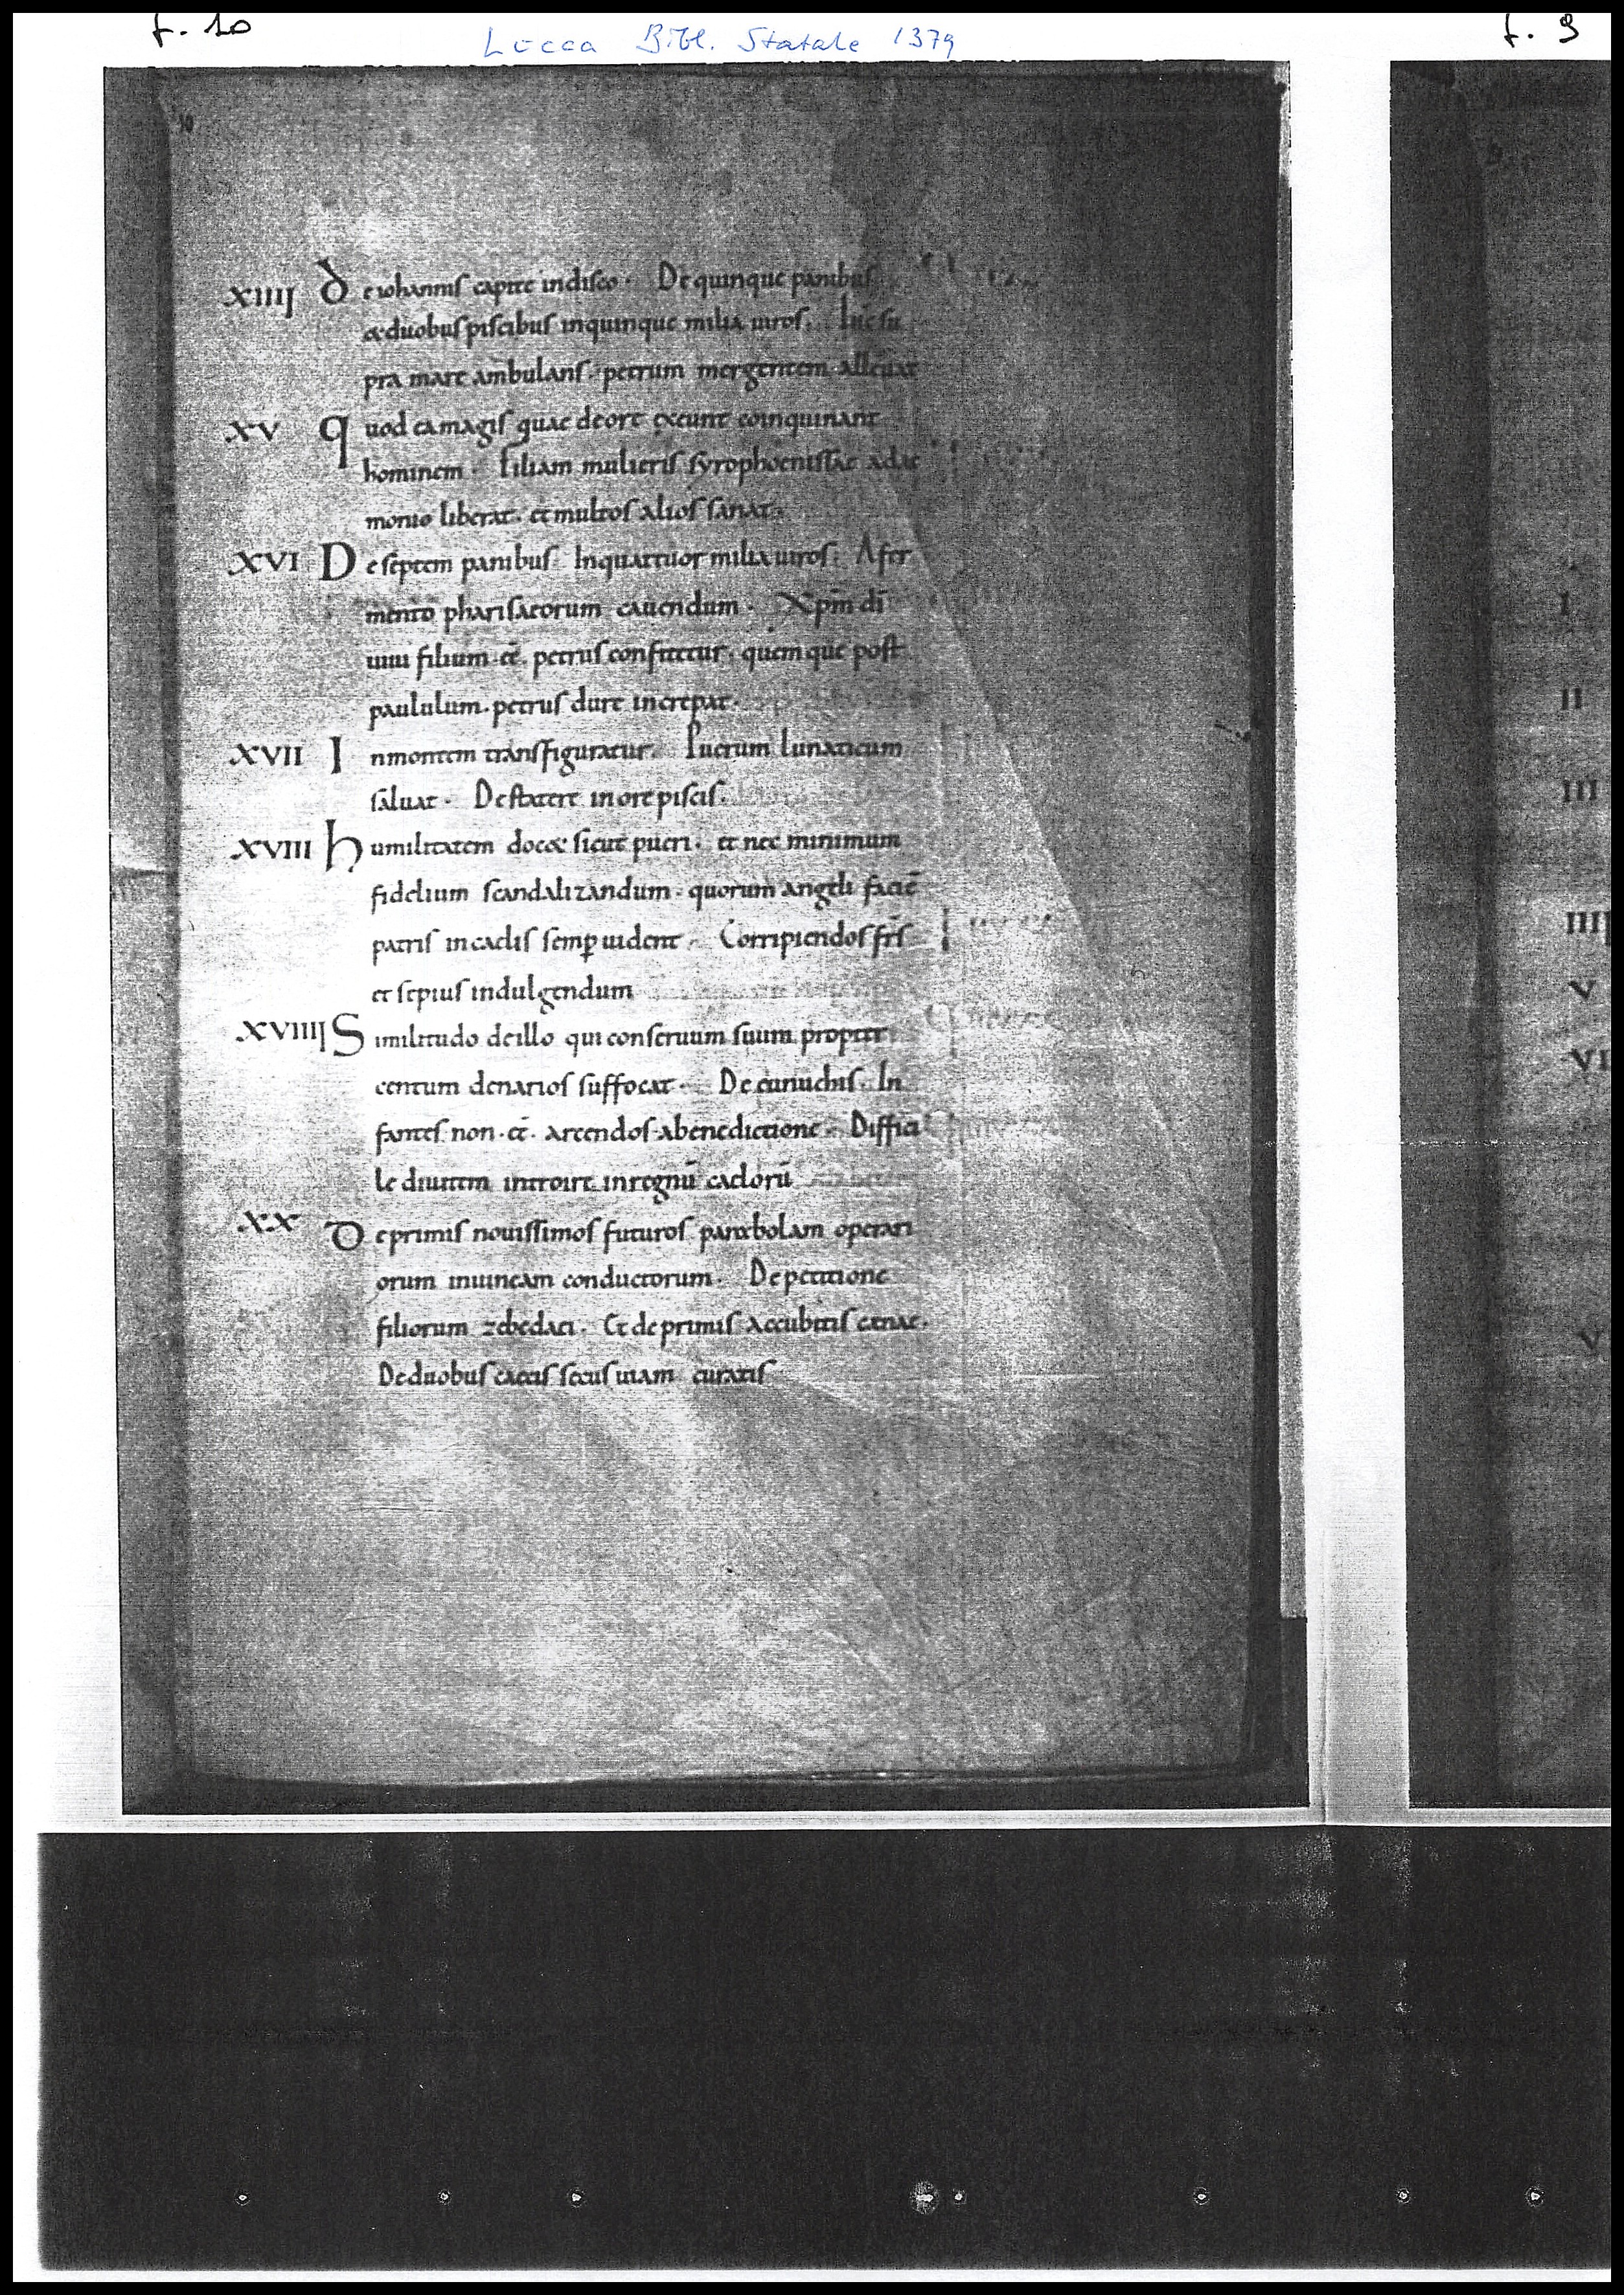 f. 10
Lucca Bibl. Statale 1379
f. 9
10
XIIII De iohannis capite in disco. De quinque panibus
& duobus piscibus in quinque milia uiros. Ihc su
pra mare ambulans. petrum mergentem alleuat
XV Quod ea magis quae de ore exeunt coinquinant
hominem. Filiam mulieris syrophoenissae a dae
monio liberat. et multos alios sanat.
XVI De septem panibus In quattuor milia uiros. A fer
mento pharisaeorum cauendum. Xpm̄ di
uiui filium. eē. petrus confitetur. quem que post
paululum. petrus dure increpat.
XVII In montem transfiguratur. Puerum lunaticum
saluat. De statere in ore piscis.
XVIII humilitatem doc& sicut pueri. et nec minimum
fidelium scandalizandum. quorum angeli faciē
patris in caelis semp̱ uident. Corripiendos fr̄s
et sepius indulgendum
XVIIII Similitudo de illo qui conseruum suum propter
centum denarios suffocat. De eunuchis. In
fantes non. eē. arcendos a benedictione. Diffici
le diuitem introire in regnū caelorū
XX De primis nouissimos futuros parabolam operari
orum in uineam conductorum. De petitione
filiorum zebedaei. Et de primis accubitis cenae.
De duobus caecis secus uiam curatis
I
II
III
IIII
V
VI
V